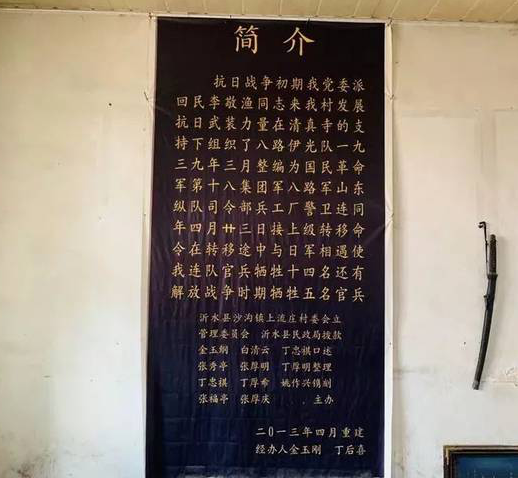 简介
抗日战争初期我党委派
回民李敬渔同志来我村发展
抗日武装力量在清真寺的支
持下组织了八路伊光队一九
三九年三月整编为国民革命
军第十八集团军八路军山东
纵队司令部兵工厂警卫连同
年四月廿三日接上级转移命
令在转移途中与日军相遇使
我连队官兵牺牲十四名还有
解放战争时期牺牲五名官兵
沂水县沙沟镇上流庄村委会立
管理委员会 沂水县民政局拨款
金玉纲 白清云 丁忠祺口述
张秀亭 张厚明 丁厚明整理
丁忠祺 丁厚希 姚作兴镌刻
张福亭 张厚庆 主办
二〇一三年四月重建
经办人金玉刚 丁后喜